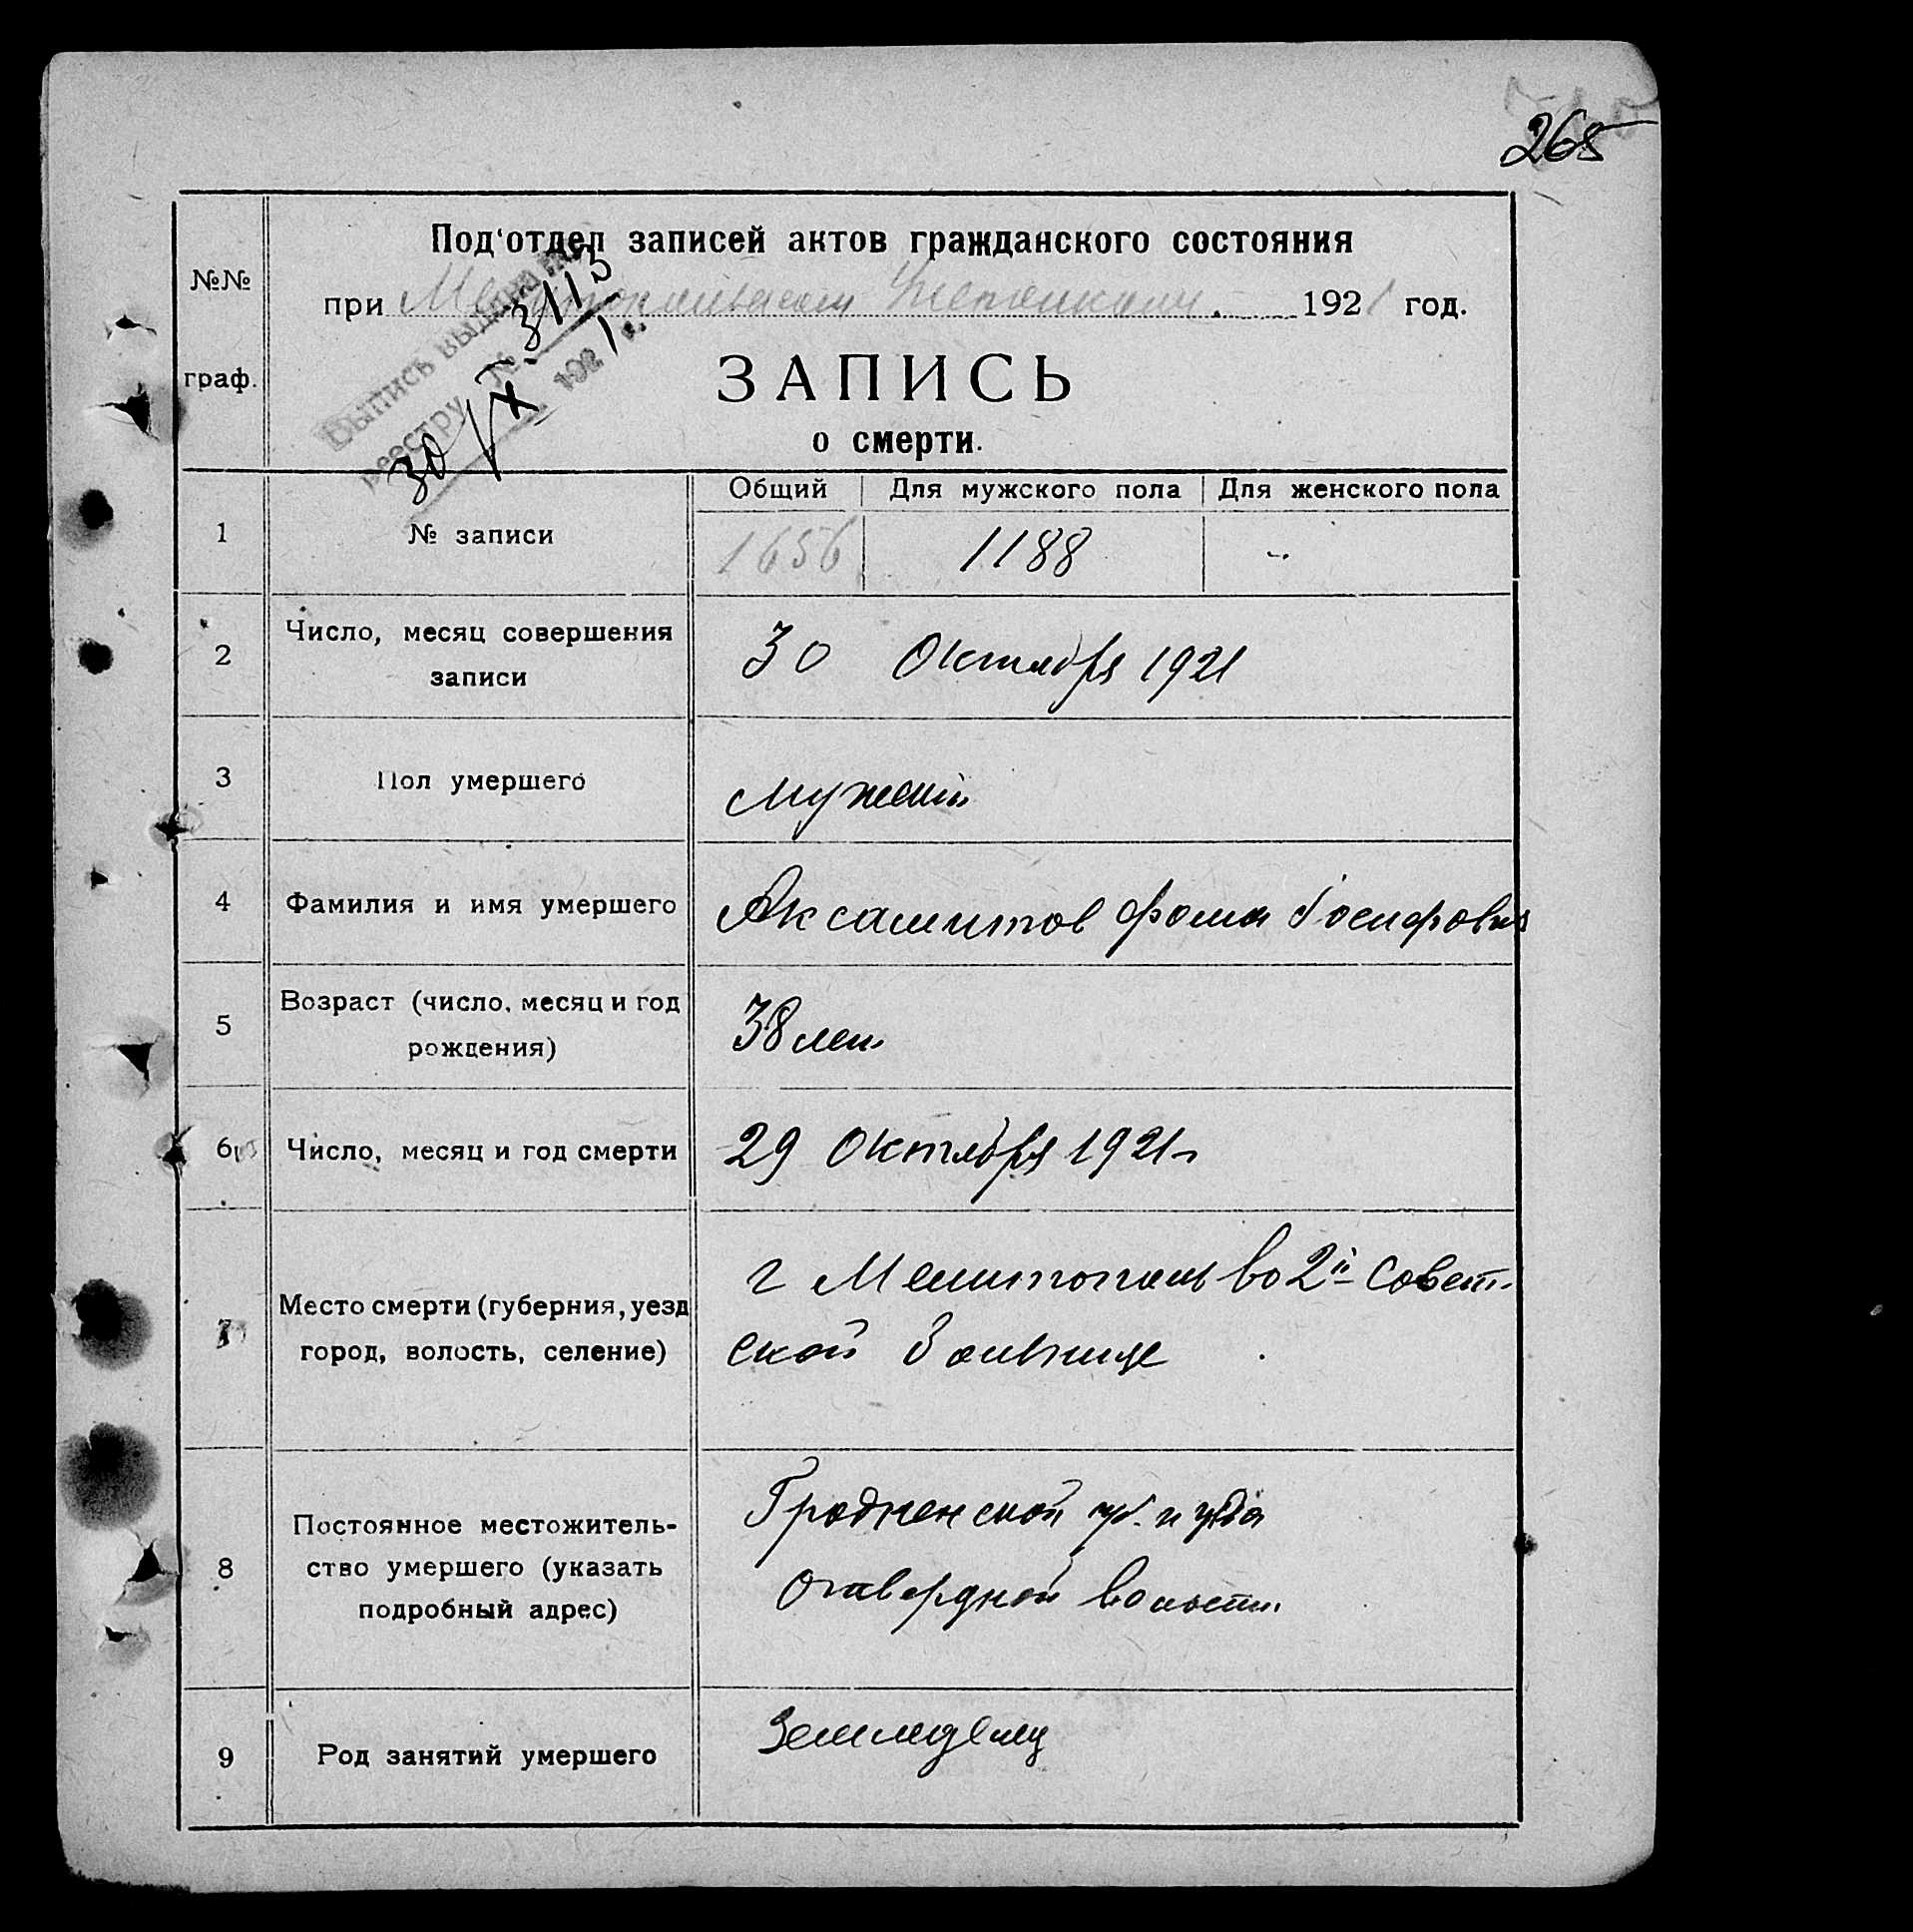 265
№№
граф.
Под'отдел записей актов гражданского состояния
при Мелитопольском 1921 год.
Выпись выдана по
реестру № 3113
30/X 1921 г.
ЗАПИСЬ
о смерти.
Общий Для мужского пола Для женского пола
1 № записи 1656 1188 "
2 Число, месяц совершения
записи
30 Октября 1921
3 Пол умершего Мужской
4 Фамилия и имя умершего Аксамитов Фома Іосифович
5 Возраст (число, месяц и год
рождения)
38 лет
6 Число, месяц и год смерти 29 Октября 1921 г
7 Место смерти (губерния, уезд
город, волость, селение)
г Мелитополь во 2й Совет-
ской больнице
8 Постоянное местожитель-
ство умершего (указать
подробный адрес)
Гродненской губ. и уезда
волости
9 Род занятий умершего Земледелец